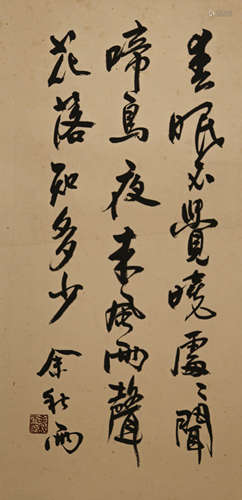 春眠不覺曉處〻聞
啼鳥夜来風雨聲
花落知多少
余秋雨